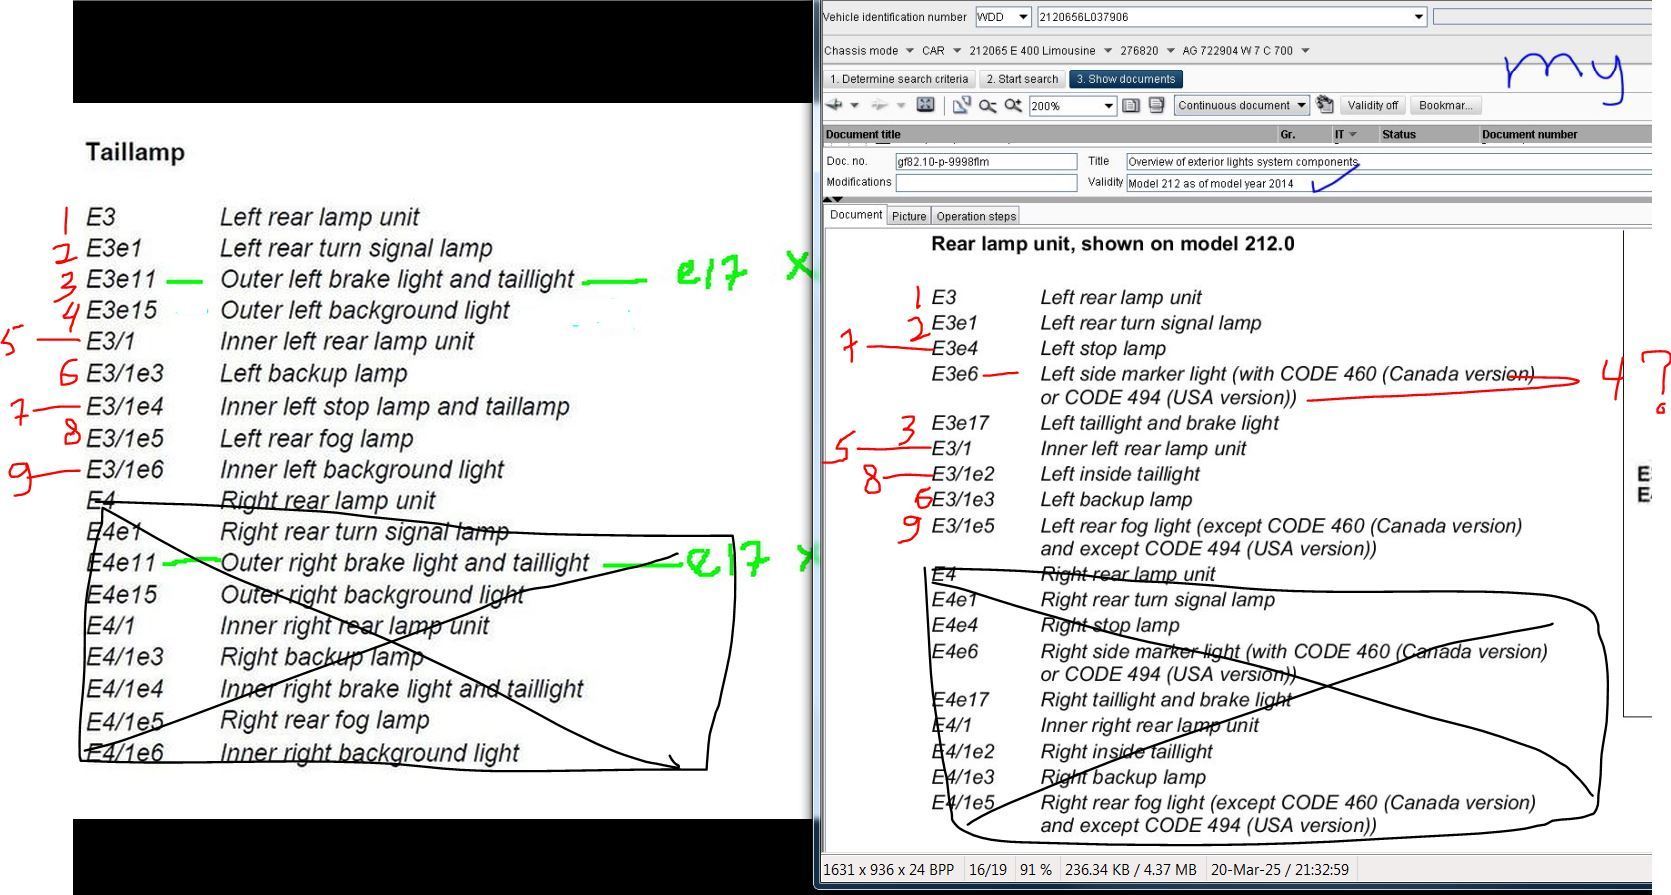 Taillamp
1 E3 Left rear lamp unit
2 E3e1 Left rear turn signal lamp
3 E3e11 Outer left brake light and taillight e17 x
4 E3e15 Outer left background light
5 E3/1 Inner left rear lamp unit
6 E3/1e3 Left backup lamp
7 E3/1e4 Inner left stop lamp and taillamp
8 E3/1e5 Left rear fog lamp
9 E3/1e6 Inner left background light
E4 Right rear lamp unit
E4e1 Right rear turn signal lamp
E4e11 Outer right brake light and taillight e17 x
E4e15 Outer right background light
E4/1 Inner right rear lamp unit
E4/1e3 Right backup lamp
E4/1e4 Inner right brake light and taillight
E4/1e5 Right rear fog lamp
E4/1e6 Inner right background light
Vehicle identification number WDD 2120656L037906
Chassis mode CAR 212065 E 400 Limousine 276820 AG 722904 W 7 C 700
my
1. Determine search criteria 2. Start search 3. Show documents
200% Continuous document Validity off Bookmar...
Document title Gr. IT Status Document number
Doc. no. gf82.10-p-9998flm Title Overview of exterior lights system components
Modifications Validity Model 212 as of model year 2014
Document Picture Operation steps
Rear lamp unit, shown on model 212.0
1 E3 Left rear lamp unit
2 E3e1 Left rear turn signal lamp
7 E3e4 Left stop lamp
E3e6 Left side marker light (with CODE 460 (Canada version) 4 ?
or CODE 494 (USA version))
3 E3e17 Left taillight and brake light
5 E3/1 Inner left rear lamp unit
8 E3/1e2 Left inside taillight
6 E3/1e3 Left backup lamp
9 E3/1e5 Left rear fog light (except CODE 460 (Canada version)
and except CODE 494 (USA version))
E4 Right rear lamp unit
E4e1 Right rear turn signal lamp
E4e4 Right stop lamp
E4e6 Right side marker light (with CODE 460 (Canada version)
or CODE 494 (USA version))
E4e17 Right taillight and brake light
E4/1 Inner right rear lamp unit
E4/1e2 Right inside taillight
E4/1e3 Right backup lamp
E4/1e5 Right rear fog light (except CODE 460 (Canada version)
and except CODE 494 (USA version))
1631 x 936 x 24 BPP 16/19 91 % 236.34 KB / 4.37 MB 20-Mar-25 / 21:32:59